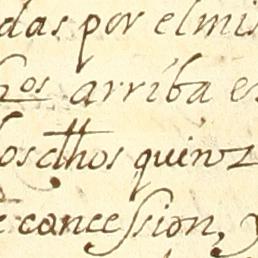 das por el mis
hos arriba e
los dhos quinz
e concession, y